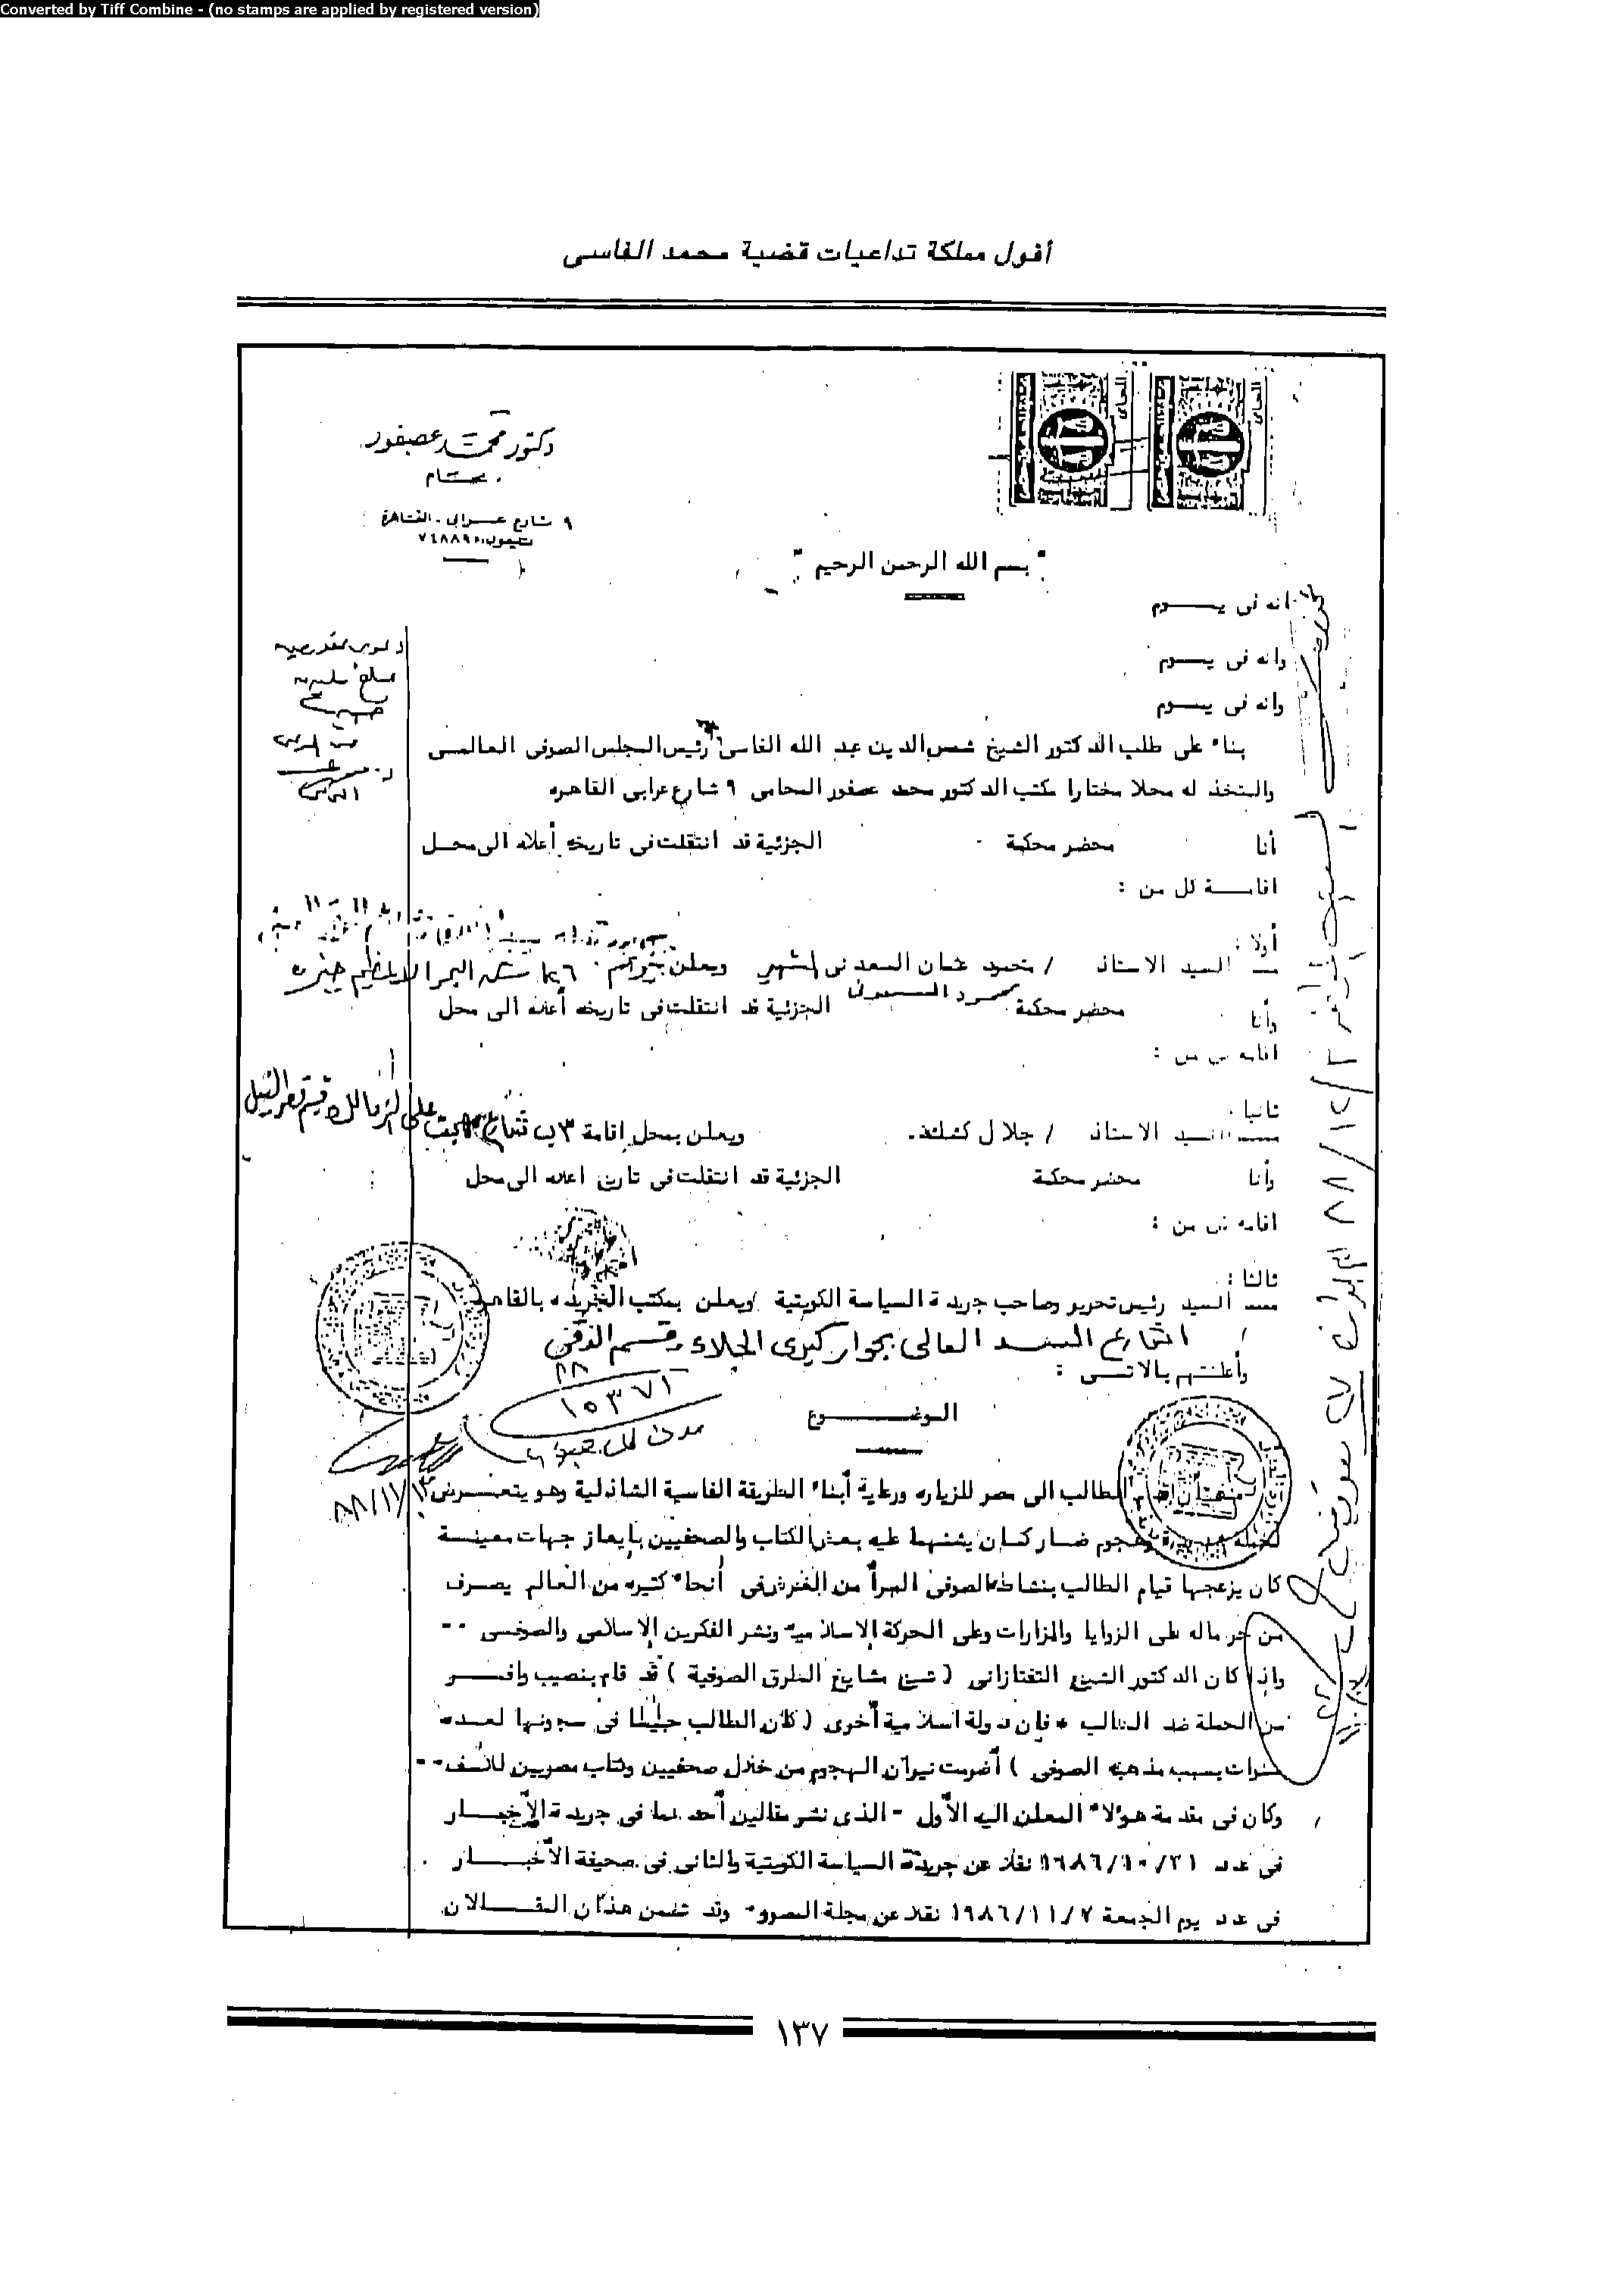 Converted by Tiff Combine - (no stamps are applied by registered version)
أفول مملكة تداعيات قضية محمد الفاسى
دكتور محمد عصفور
محام
٩ شارع عرابى - القاهرة
تليفون
" بسم الله الرحمن الرحيم "
انه فى يـــوم
وانه فى يـــوم
وانه فى يـــوم
بناء على طلب الدكتور الشيخ شمس الدين عبد الله الفاسى رئيس المجلس الصوفى العالمـى
والمتخذ له محلا مختارا مكتب الدكتور محمد عصفور المحامى ٩ شارع عرابى القاهره
أنا محضر محكمة الجزئية قد انتقلت فى تاريخه أعلاه الى محـل
اقامـــة كل من :
أولا :
السيد الاستاذ / محمود عثمان السعدنى الشهير ويعلن
محمود السعدنى
وأنا محضر محكمة الجزئية قد انتقلت فى تاريخه أعلاه الى محل
اقامه كل من :
ثانيا :
السيد الاستاذ / جلال كشك . ويعلن بمحل اقامة ٣
وأنا محضر محكمة الجزئية قد انتقلت فى تاريخ اعلاه الى محل
اقامه كل من :
ثالثا :
السيد رئيس تحرير وصاحب جريدة السياسة الكويتية ويعلن بمكتب الجريده بالقاهره
السد العالى بجوار كوبرى الجلاء قسم الدقى
وأعلنتهم بالاتـــى :
٨٨
١٥٣٧١
الموضـــــــوع
الطالب الى مصر للزياره ورعاية أبناء الطريقة الفاسية الشاذلية وهو يتعــرض
لحملة وهجوم ضار كان يشنهما عليه بعض الكتاب والصحفيين بإيعاز جهات معينـــة
كان يزعجها قيام الطالب بنشاطه الصوفى المبرأ من الغرض فى أنحاء كثيره من العالم يصرف
من حر ماله على الزوايا والمزارات وعلى الحركة الإسلامية ونشر الفكرين الإسلامى والصوفـى --
واذا كان الدكتور الشيخ التفتازانى ( شيخ مشايخ الطرق الصوفية ) قد قام بنصيب وافـــر
من الحملة ضد الطالب ، فإن دولة اسلامية أخرى ( كان الطالب فى سجونها لعـده
سنوات بسبب مذهبه الصوفى ) أضرمت نيران الهجوم من خلال صحفيين وكتاب مصريين للأسف --
وكان فى مقدمة هؤلاء المعلن اليه الأول - الذى نشر مقالين أحدهما فى جريدة الأخبـــار
فى عدد ٣١/١٠/١٩٨٦ نقلا عن جريدة السياسة الكويتية والثانى فى صحيفة الأخبـــار
فى عدد يوم الجمعة ٧/١١/١٩٨٦ نقلا عن مجلة المصور - وقد تضمن هذان المقـــالان
١٣٧